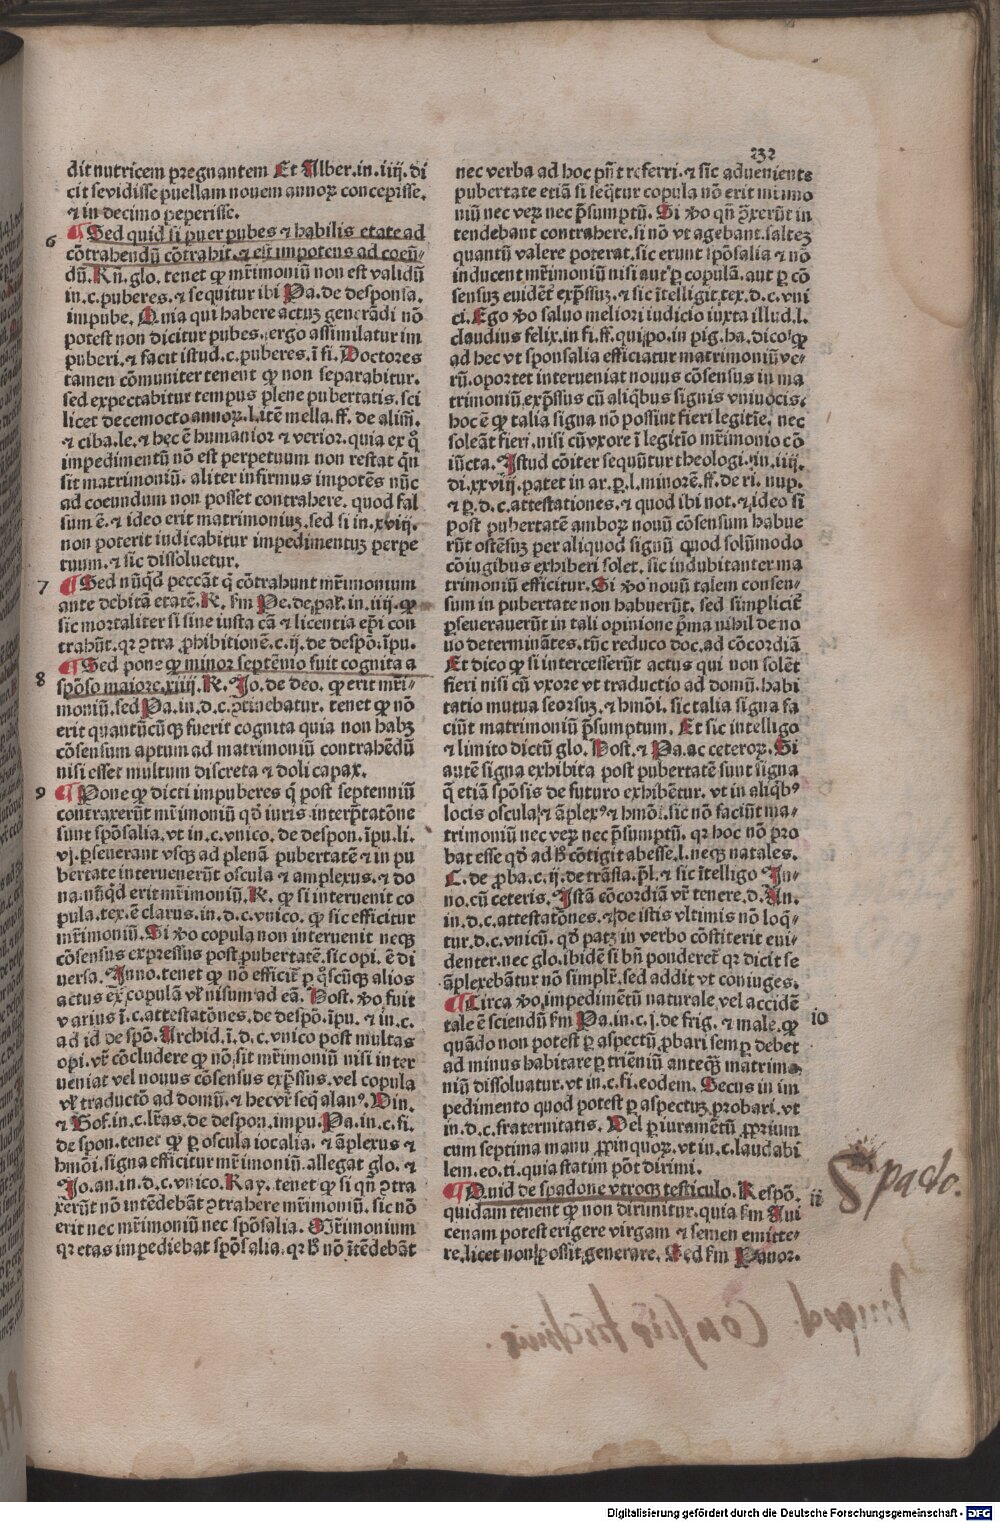 232
dit nutricem pregnantem Et Alber. in. iiij. di
cit se vidisse puellam nouem annoꝝ concepisse.
⁊ in decimo peperisse.
6
¶ Sed quid si puer pubes ⁊ habilis etate ad
cõtrahendũ cõtrahit. ⁊ est impotens ad coeũ-
dũ. Rñ. glo. tenet ꝙ mr̃imoniũ non est validũ
in. c. puberes. ⁊ sequitur ibi Pa. de desponsa.
impube. Quia qui habere actuꝫ generãdi nõ
potest non dicitur pubes. ergo assimilatur im
puberi. ⁊ facit istud. c. puberes. ĩ fi. Doctores
tamen cõmuniter tenent ꝙ non separabitur.
sed expectabitur tempus plene pubertatis. sci
licet decemocto annoꝝ. l. itẽ mella. ff. de alim̃.
⁊ ciba. le. ⁊ hec ẽ humanior ⁊ verior. quia ex q̊
impedimentũ nõ est perpetuum non restat qñ
sit matrimoniũ. aliter infirmus impotẽs nũc
ad coeundum non posset contrahere. quod fal
sum ẽ. ⁊ ideo erit matrimoniuꝫ. sed si in. xviij.
non poterit iudicabitur impedimentuꝫ perpe
tuum. ⁊ sic dissoluetur.
7
¶ Sed nũq̃d peccãt q̃ cõtrahunt mr̃imonium
ante debitã etatẽ. R. ẜm Pe. de pal. in. iiij. ꝙ
sic mortaliter si sine iusta cã ⁊ licentia ep̃i con
trahũt. qꝛ ꝯtra ꝓhibitionẽ. c. ij. de despõ. ĩpu.
¶ Sed pone ꝙ minor septẽnio fuit cognita a
8
spõso maiore. xiiij. R. Jo. de deo. ꝙ erit mr̃i-
moniũ. sed Pa. in. d. c. ꝯtinebatur. tenet ꝙ nõ
erit quantũcũqꝫ fuerit cognita quia non habꝫ
cõsensum aptum ad matrimoniũ contrahẽdũ
nisi esset multum discreta ⁊ doli capax.
9
¶ Pone ꝙ dicti impuberes q̃ post septenniũ
contraxerũt mr̃imoniũ qd̃ iuris interp̃tatõne
sunt spõsalia. vt in. c. vnico. de despon. ĩpu. li.
vj. ꝑseuerant vsqꝫ ad plenã pubertatẽ ⁊ in pu
bertate interuenerũt oscula ⁊ amplexus. ⁊ do
na. nũq̃d erit mr̃imoniũ. R. ꝙ si interuenit co
pula. tex. ẽ clarus. in. d. c. vnico. ꝙ sic efficitur
mr̃imoniũ. Si ꝟo copula non interuenit neqꝫ
cõsensus expressus post pubertatẽ. sic opi. ẽ di
uersa. Inno. tenet ꝙ nõ efficit̃ ꝑ q̃scũqꝫ alios
actus ext̃ copulã vl̃ nisum ad eã. Host. ꝟo fuit
varius ĩ. c. attestatões. de despõ. ĩpu. ⁊ in. c.
ad id de spõ. Archid. ĩ. d. c. vnico post multas
opi. vr̃ cõcludere ꝙ nõ sit mr̃imoniũ nisi inter
ueniat vel nouus cõsensus exp̃ssus. vel copula
vl̃ traductõ ad domũ. ⁊ hec vr̃ seq̃ alanꝰ. Din.
⁊ Gof. in. c. lr̃as. de despon. impu. Pa. in. c. fi.
de spon. tenet ꝙ ꝑ oscula iocalia. ⁊ ãplexus ⁊
hmõi. signa efficitur mr̃imoniũ. allegat glo. ⁊
Jo. an. in. d. c. vnico. Ray. tenet ꝙ si qñ ꝯtra
xerũt nõ intẽdebãt ꝯtrahere mr̃imoniũ. sic nõ
erit nec mr̃imoniũ nec spõsalia. Mr̃imonium
qꝛ etas impediebat spõsalia. qꝛ h̃ nõ ĩtẽdebãt
nec verba ad hoc pñt referri. ⁊ sic adueniente
pubertate etiã si seq̃tur copula nõ erit mr̃imo
niũ nec verꝫ nec p̃sumptũ. Si ꝟo qñ ꝯ̃xerũt in
tendebant contrahere. si nõ vt agebant. salteꝫ
quantũ valere poterat. sic erunt spõsalia ⁊ nõ
inducent mr̃imoniũ nisi aut ꝑ copulã. aut ꝑ cõ
sensuꝫ euidẽt̃ exp̃ssuꝫ. ⁊ sic ĩtelligit tex. d. c. vni
ci. Ego ꝟo saluo meliori iudicio iuxta illud. l.
claudius felix. in fi. ff. qui. po. in pig. ha. dico ꝙ
ad hec vt sponsalia efficiatur matrimoniũ ve-
rũ. oportet interueniat nouus cõsensus in ma
trimoniũ. exp̃ssus cũ aliq̃bus signis vniuocis.
hoc ẽ ꝙ talia signa nõ possint fieri legitĩe. nec
soleãt fieri. nisi cũ vxore ĩ legitĩo mr̃imonio cõ
iũcta. Istud cõiter sequũtur theologi. in. iiij.
di. xxviij. patet in ar. ꝑ. l. minorẽ. ff. de ri. nup.
⁊ ꝑ. d. c. attestationes. ⁊ quod ibi not. ⁊ ideo si
post pubertatẽ amboꝝ nouũ cõsensum habue
rũt ostẽsuꝫ per aliquod signũ quod solũmodo
cõiugibus exhiberi solet. sic indubitanter ma
trimoniũ efficitur. Si ꝟo nouũ talem consen-
sum in pubertate non habuerũt. sed simplicit̃
ꝑseuerauerũt in tali opinione p̃ma nihil de no
uo determinãtes. tũc reduco doc. ad cõcordiã
Et dico ꝙ si intercesserũt actus qui non solẽt
fieri nisi cũ vxore vt traductio ad domũ. habi
tatio mutua seorsuꝫ. ⁊ hmõi. sic talia signa fa
ciũt matrimoniũ p̃sumptum. Et sic intelligo
⁊ limito dictũ glo. Host. ⁊ Pa. ac ceteroꝝ. Si
autẽ signa exhibita post pubertatẽ sunt signa
q̃ etiã spõsis de futuro exhibẽtur. vt in aliq̃bꝰ
locis oscula. ⁊ ãplexꝰ ⁊ hmõi. sic nõ faciũt ma-
trimoniũ nec verꝫ nec p̃sumptũ. qꝛ hoc nõ pro
bat esse qd̃ ad h̃ cõtigit abesse. l. neqꝫ natales.
C. de ꝓba. c. ij. de trãsla. p̃l. ⁊ sic ĩtelligo In-
no. cũ ceteris. Istã cõcordiã vr̃ tenere. d. An.
in. d. c. attestatões. ⁊ de istis vltimis nõ loq̃-
tur. d. c. vnicũ. qd̃ patꝫ in verbo cõstiterit eui-
denter. nec glo. ibidẽ si bñ ponderet̃ qꝛ dicit se
ãplexebãtur nõ simplr̃. sed addit vt coniuges.
¶ Circa ꝟo impedimẽtũ naturale vel accidẽ
10
tale ẽ sciendũ ẜm Pa. in. c. j. de frig. ⁊ male. ꝙ
quãdo non potest ꝑ aspectũ ꝓbari semꝑ debet
ad minus habitare ꝑ triẽniũ anteqꝫ matrimo
niũ dissoluatur. vt in. c. fi. eodem. Secus in im
pedimento quod potest ꝑ aspectuꝫ probari. vt
in. d. c. fraternitatis. Uel ꝑ iuramẽtũ ꝓprium
cum septima manu ꝓpinquoꝝ. vt in. c. laudabi
lem. eo. ti. quia statim põt dirimi.
¶ Quid de spadone vtroqꝫ testiculo. Respõ.
11
Spado.
quidam tenent ꝙ non dirimitur. quia ẜm Aui
cenam potest erigere virgam ⁊ semen emitte-
re. licet non possit generare. Sed ẜm Panor.
Digitalisierung gefördert durch die Deutsche Forschungsgemeinschaft - DFG